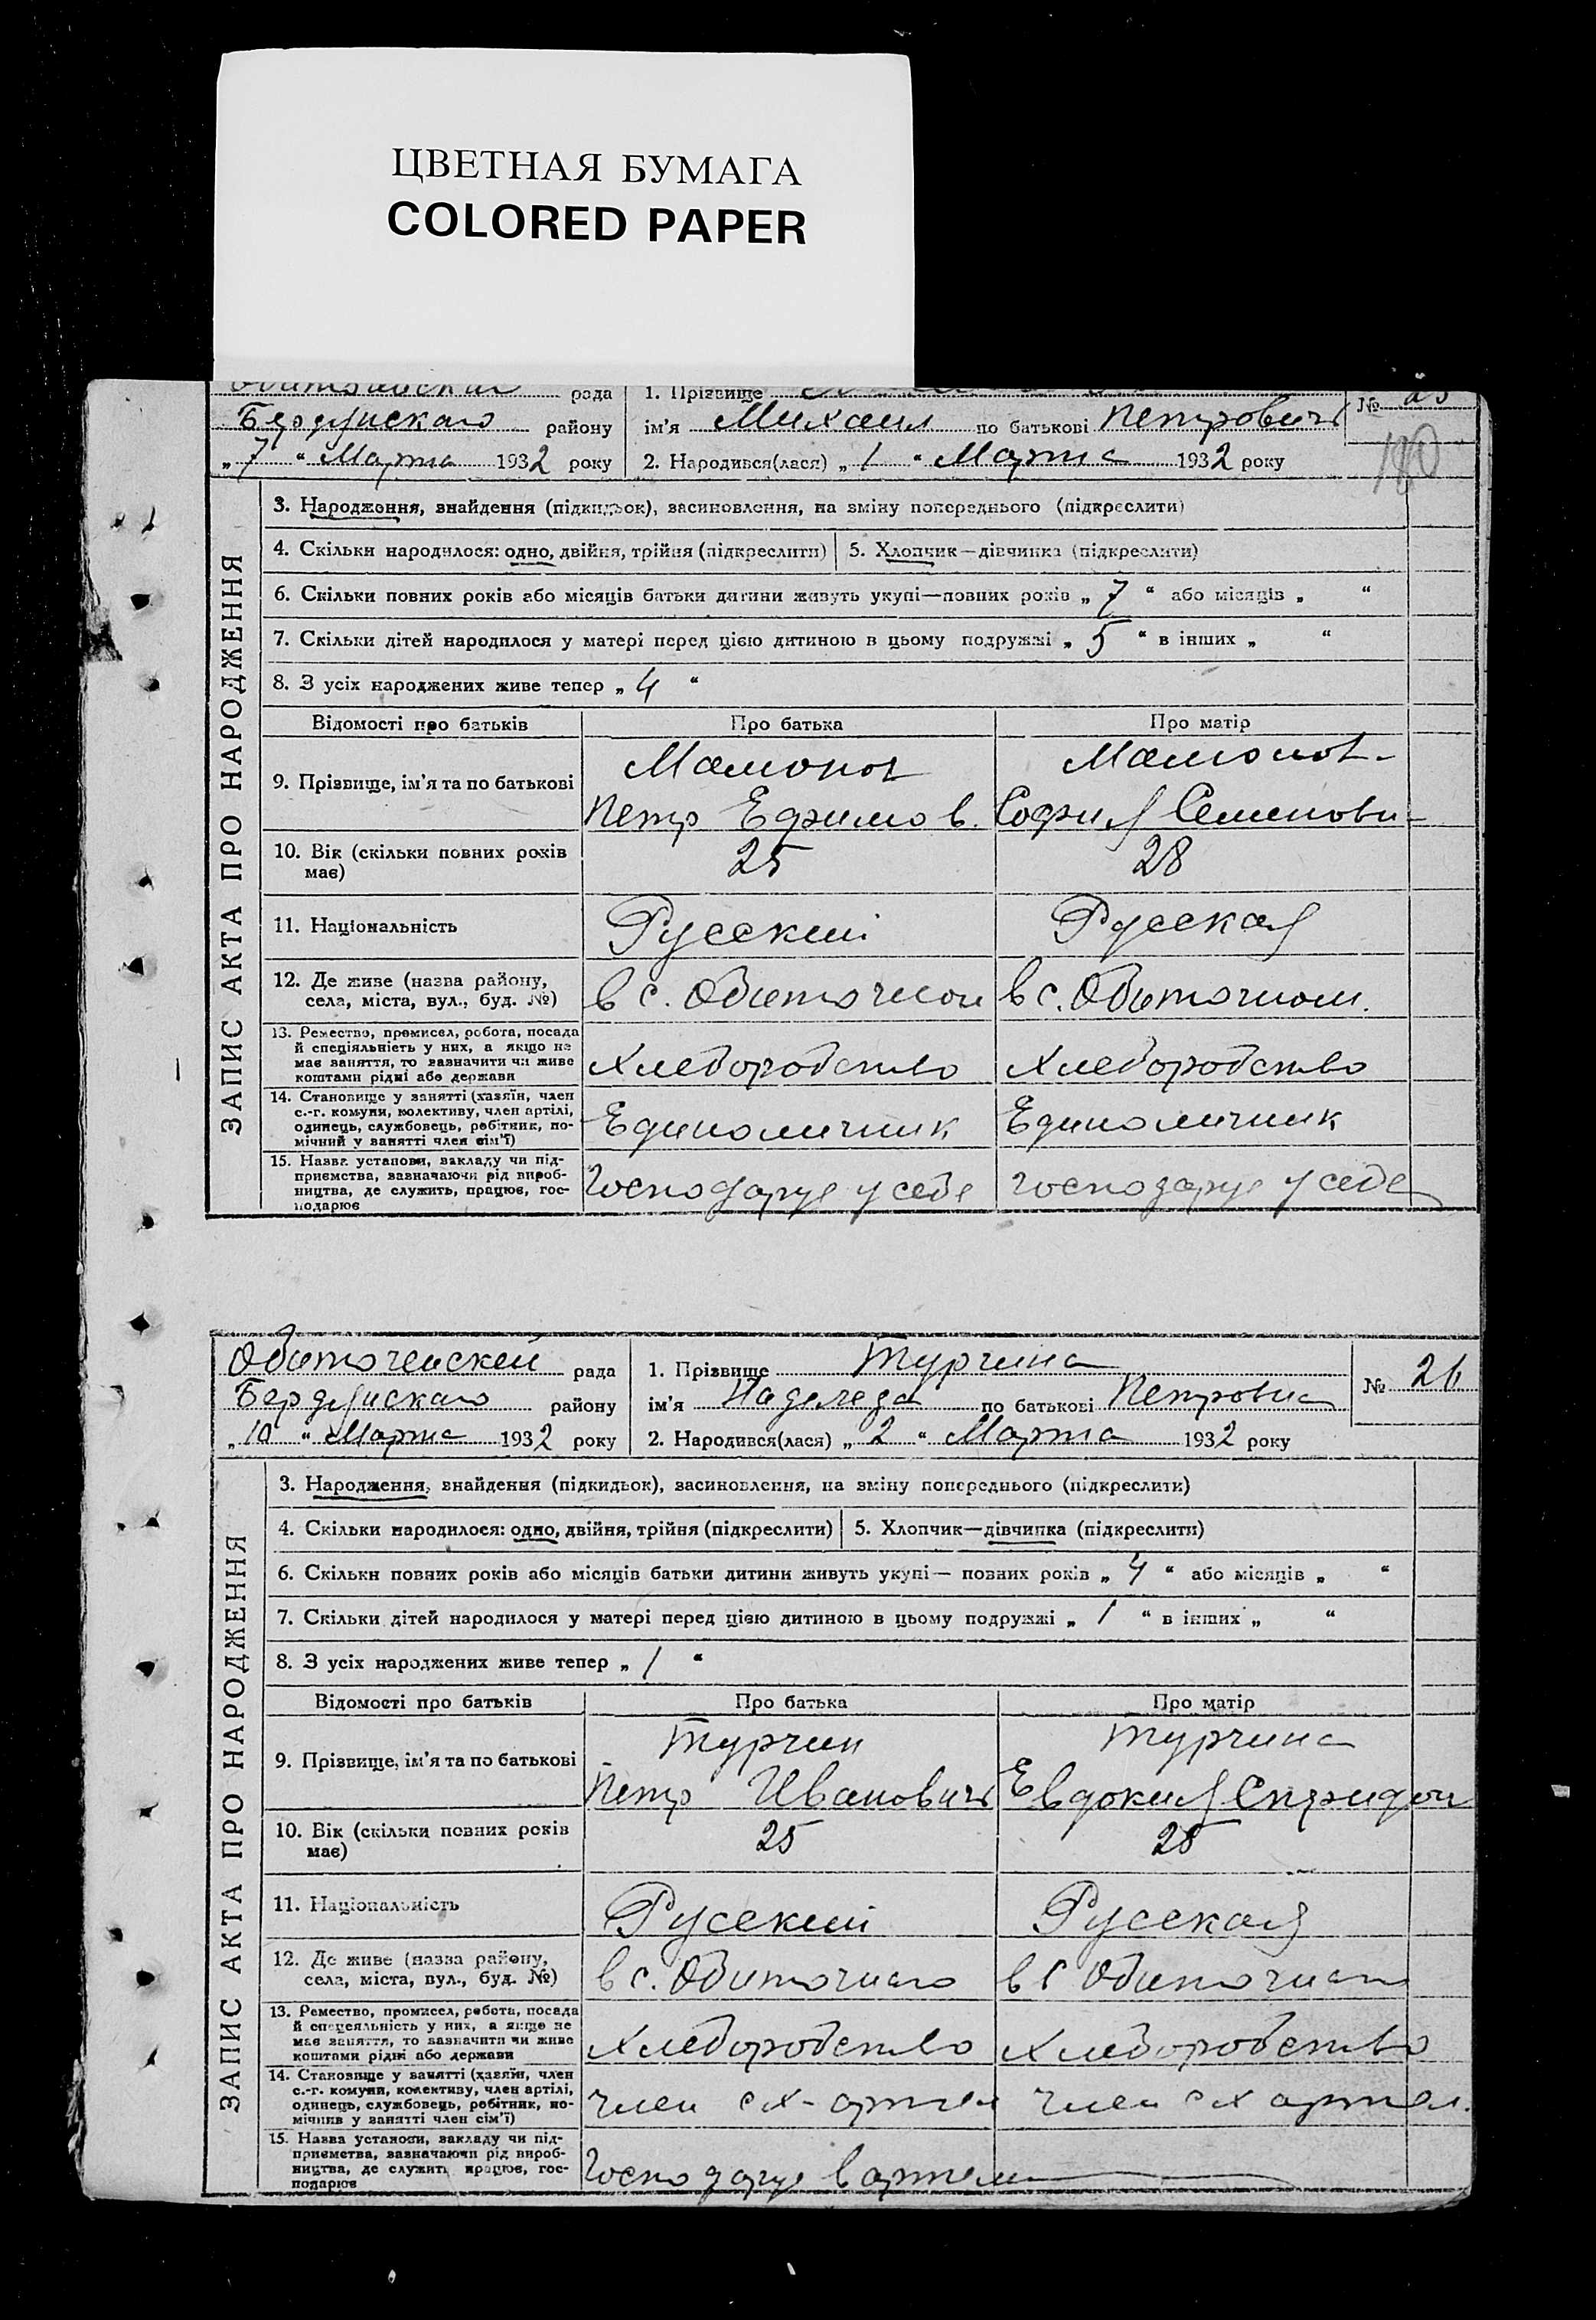 ЦВЕТНАЯ БУМАГА
COLORED PAPER
рада 1. Прізвище № 25
Бердянскаго району ім'я Михаил по батькові Петрович
„7“ Марта 1932 року 2. Народився(лася) „1“ Марта 1932 року
180
ЗАПИС АКТА ПРО НАРОДЖЕННЯ
3. Народження, знайдення (підкидьок), засиновлення, на зміну попереднього (підкреслити)
4. Скільки народилося: одно, двійня, трійня (підкреслити) 5. Хлопчик—дівчинка (підкреслити)
6. Скільки повних років або місяців батьки дитини живуть укупі—повних років „7“ або місяців „ “
7. Скільки дітей народилося у матері перед цією дитиною в цьому подружжі „5“ в інших „ “
8. З усіх народжених живе тепер „4“
Відомості про батьків Про батька Про матір
9. Прізвище, ім'я та по батькові Мамонов Мамонов-
Петр Ефимов. София Семеновн-
10. Вік (скільки повних років має) 25 28
11. Національність Русский Русская
12. Де живе (назва району, села, міста, вул., буд. №) в с. Обиточном в с. Обиточном.
13. Ремество, промисел, робота, посада й спеціяльність у них, а якщо не має заняття, то зазначити чи живе коштами рідні або держави Хлеборобство Хлеборобство
14. Становище у занятті (хазяїн, член с.-г. комуни, колективу, член артілі, одинець, службовець, робітник, помічний у занятті член сім'ї) Единоличник Единоличник
15. Назва установи, закладу чи підприємства, зазначаючи рід виробництва, де служить, працює, господарює Господарує у себе Господарує у себе
Обиточенской рада 1. Прізвище Турчина № 26
Бердянскаго району ім'я Надежда по батькові Петровна
„10“ Марта 1932 року 2. Народився(лася) „2“ Марта 1932 року
ЗАПИС АКТА ПРО НАРОДЖЕННЯ
3. Народження, знайдення (підкидьок), засиновлення, на зміну попереднього (підкреслити)
4. Скільки народилося: одно, двійня, трійня (підкреслити) 5. Хлопчик—дівчинка (підкреслити)
6. Скільки повних років або місяців батьки дитини живуть укупі— повних років „4“ або місяців „ “
7. Скільки дітей народилося у матері перед цією дитиною в цьому подружжі „1“ в інших „ “
8. З усіх народжених живе тепер „1“
Відомості про батьків Про батька Про матір
9. Прізвище, ім'я та по батькові Турчин Турчина
Петр Иванович Евдокия Спиридон
10. Вік (скільки повних років має) 25 25
11. Національність Русский Русская
12. Де живе (назва району, села, міста, вул., буд. №) в с. Обиточно в с Обиточно
13. Ремество, промисел, робота, посада й спецеяльність у них, а якщо не має заняття, то зазначити чи живе коштами рідні або держави Хлеборобство Хлеборобство
14. Становище у занятті (хазяїн, член с.-г. комуни, колективу, член артілі, одинець, службовець, робітник, помічник у занятті член сім'ї) член с х- артели член с х артел.
15. Назва установи, закладу чи підприємства, зазначаючи рід виробництва, де служить працює, господарює Господарує в артели